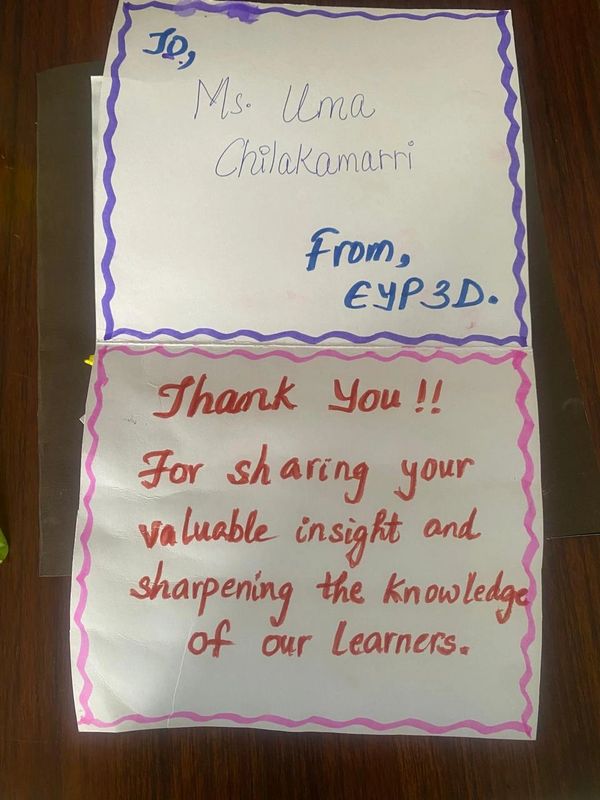 To,
Ms. Uma
Chilakamarri
From,
EYP3D.
Thank You!!
For sharing your
valuable insight and
sharpening the knowledge
of our Learners.